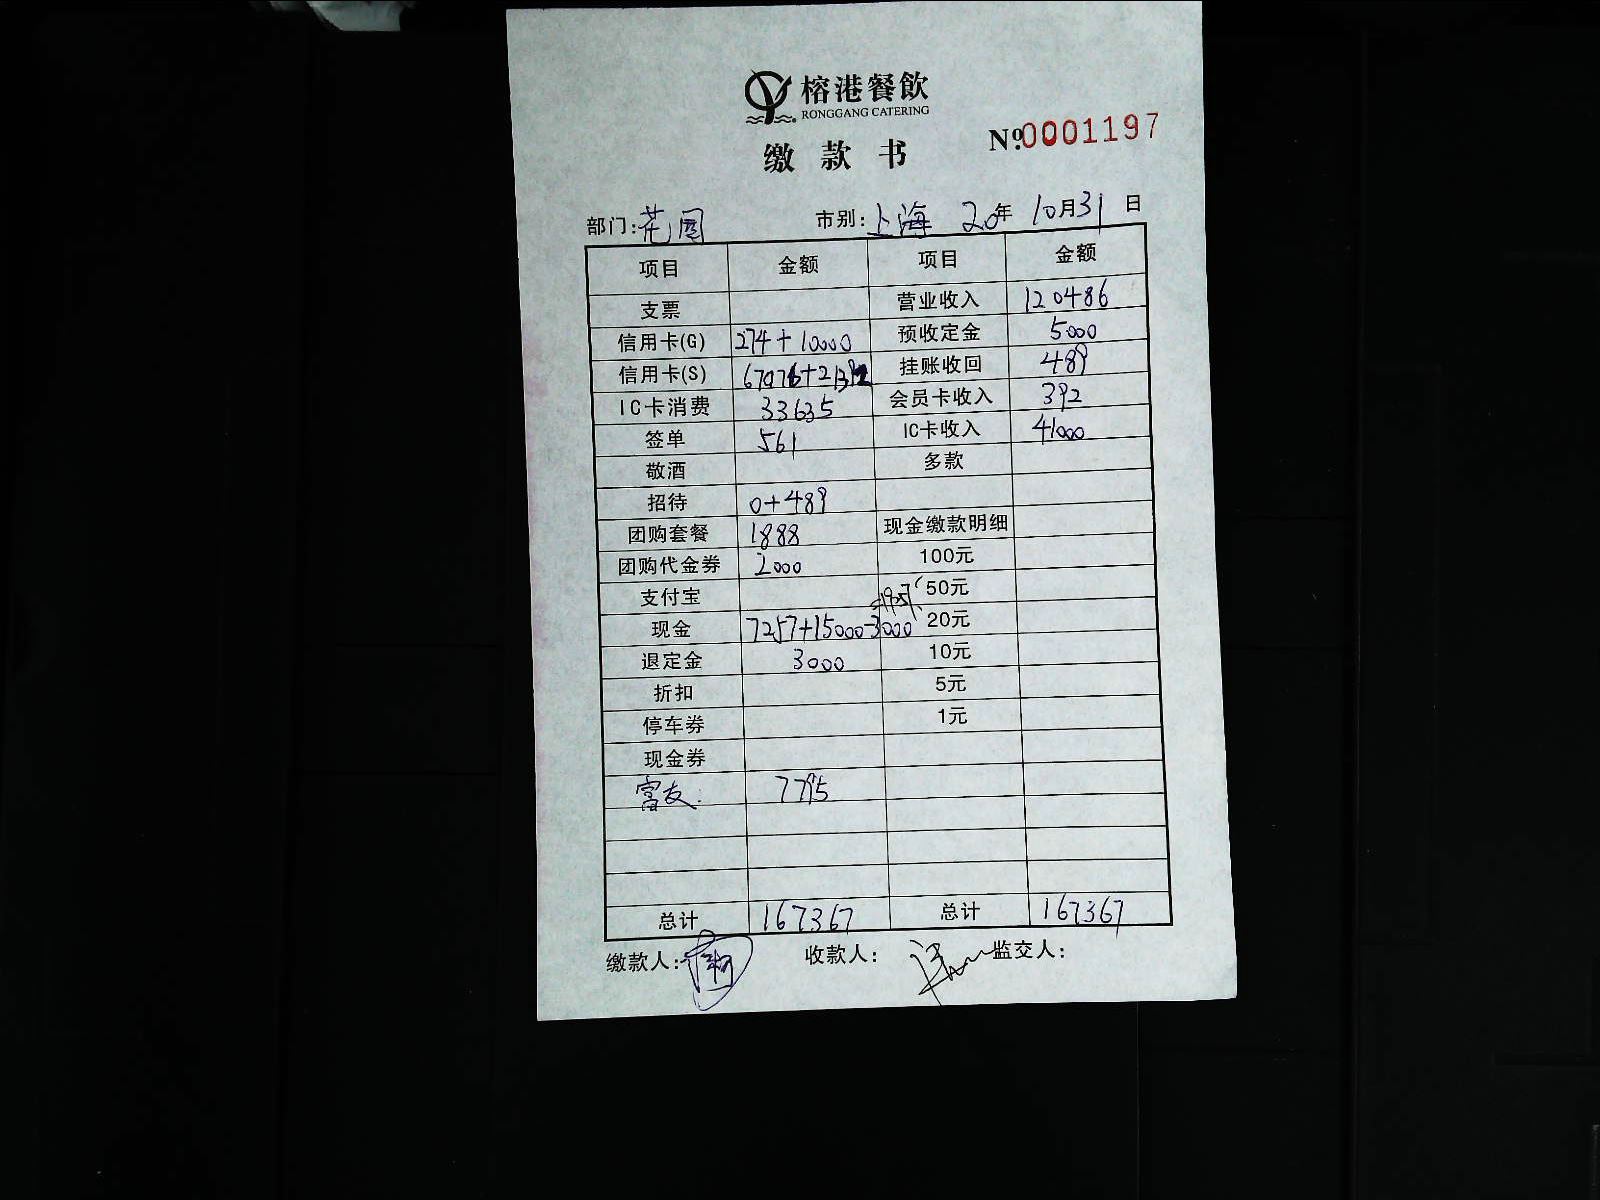 榕港餐飲
RONGGANG CATERING
缴款书
Nº 0001197
部门:花园 市别:上海 20年 10月31日
项目 金额 项目 金额
支票 营业收入 120486
信用卡(G) 274+10000 预收定金 5000
信用卡(S) 67076+21392 挂账收回 489
IC卡消费 33635 会员卡收入 392
签单 561 IC卡收入 41000
敬酒 多款
招待 0+489
团购套餐 1888 现金缴款明细
团购代金券 2000 100元
支付宝 50元
现金 7257+15000-3000 20元
退定金 3000 10元
折扣 5元
停车券 1元
现金券
富友 7795
总计 167367 总计 167367
缴款人: 收款人: 监交人: